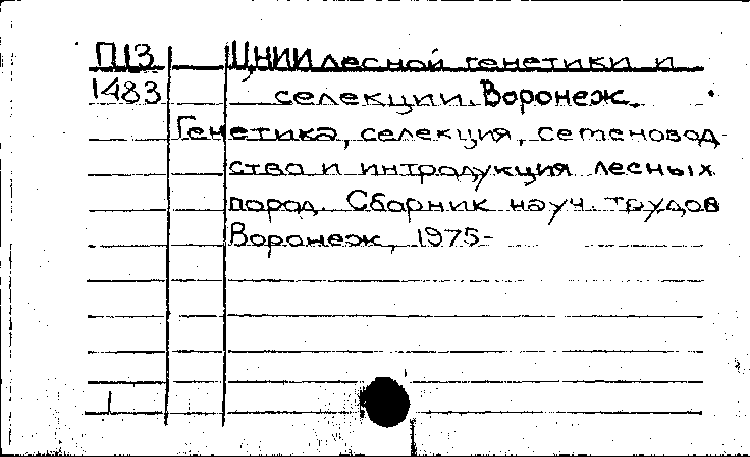 П13 ЦНИИ лесной генетики и
1483 селекции. Воронеж.
Генетика, селекция, семеновод-
ство и интродукция лесных
пород. Сборник науч. трудов
Воронеж, 1975-
1